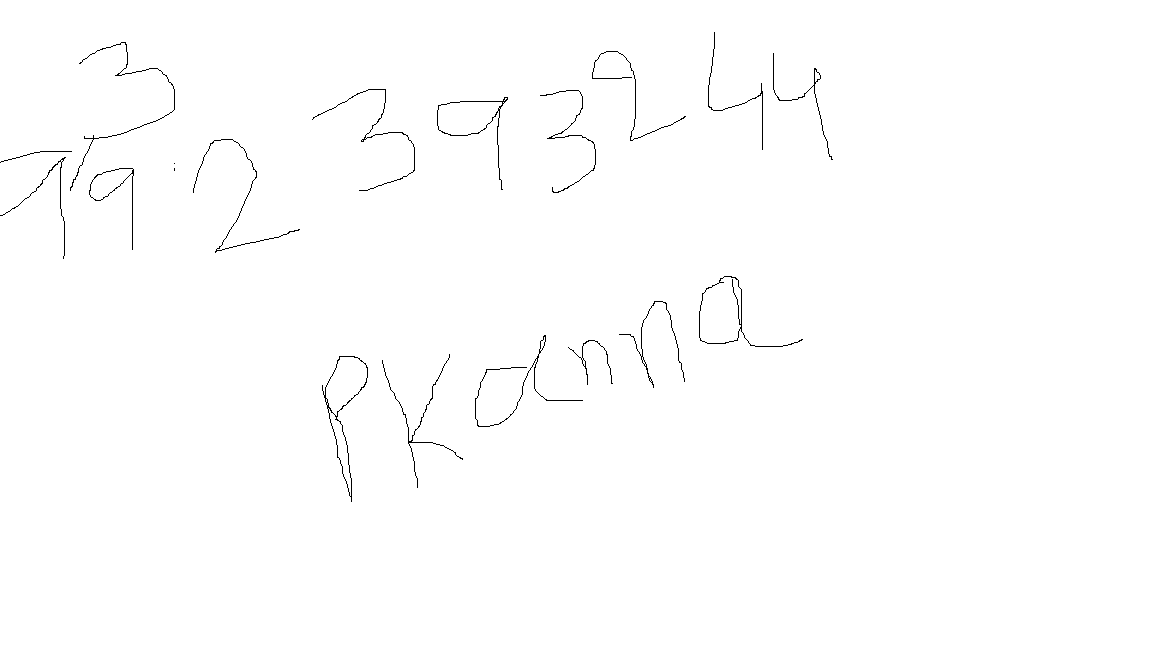 9923939244
pkanna